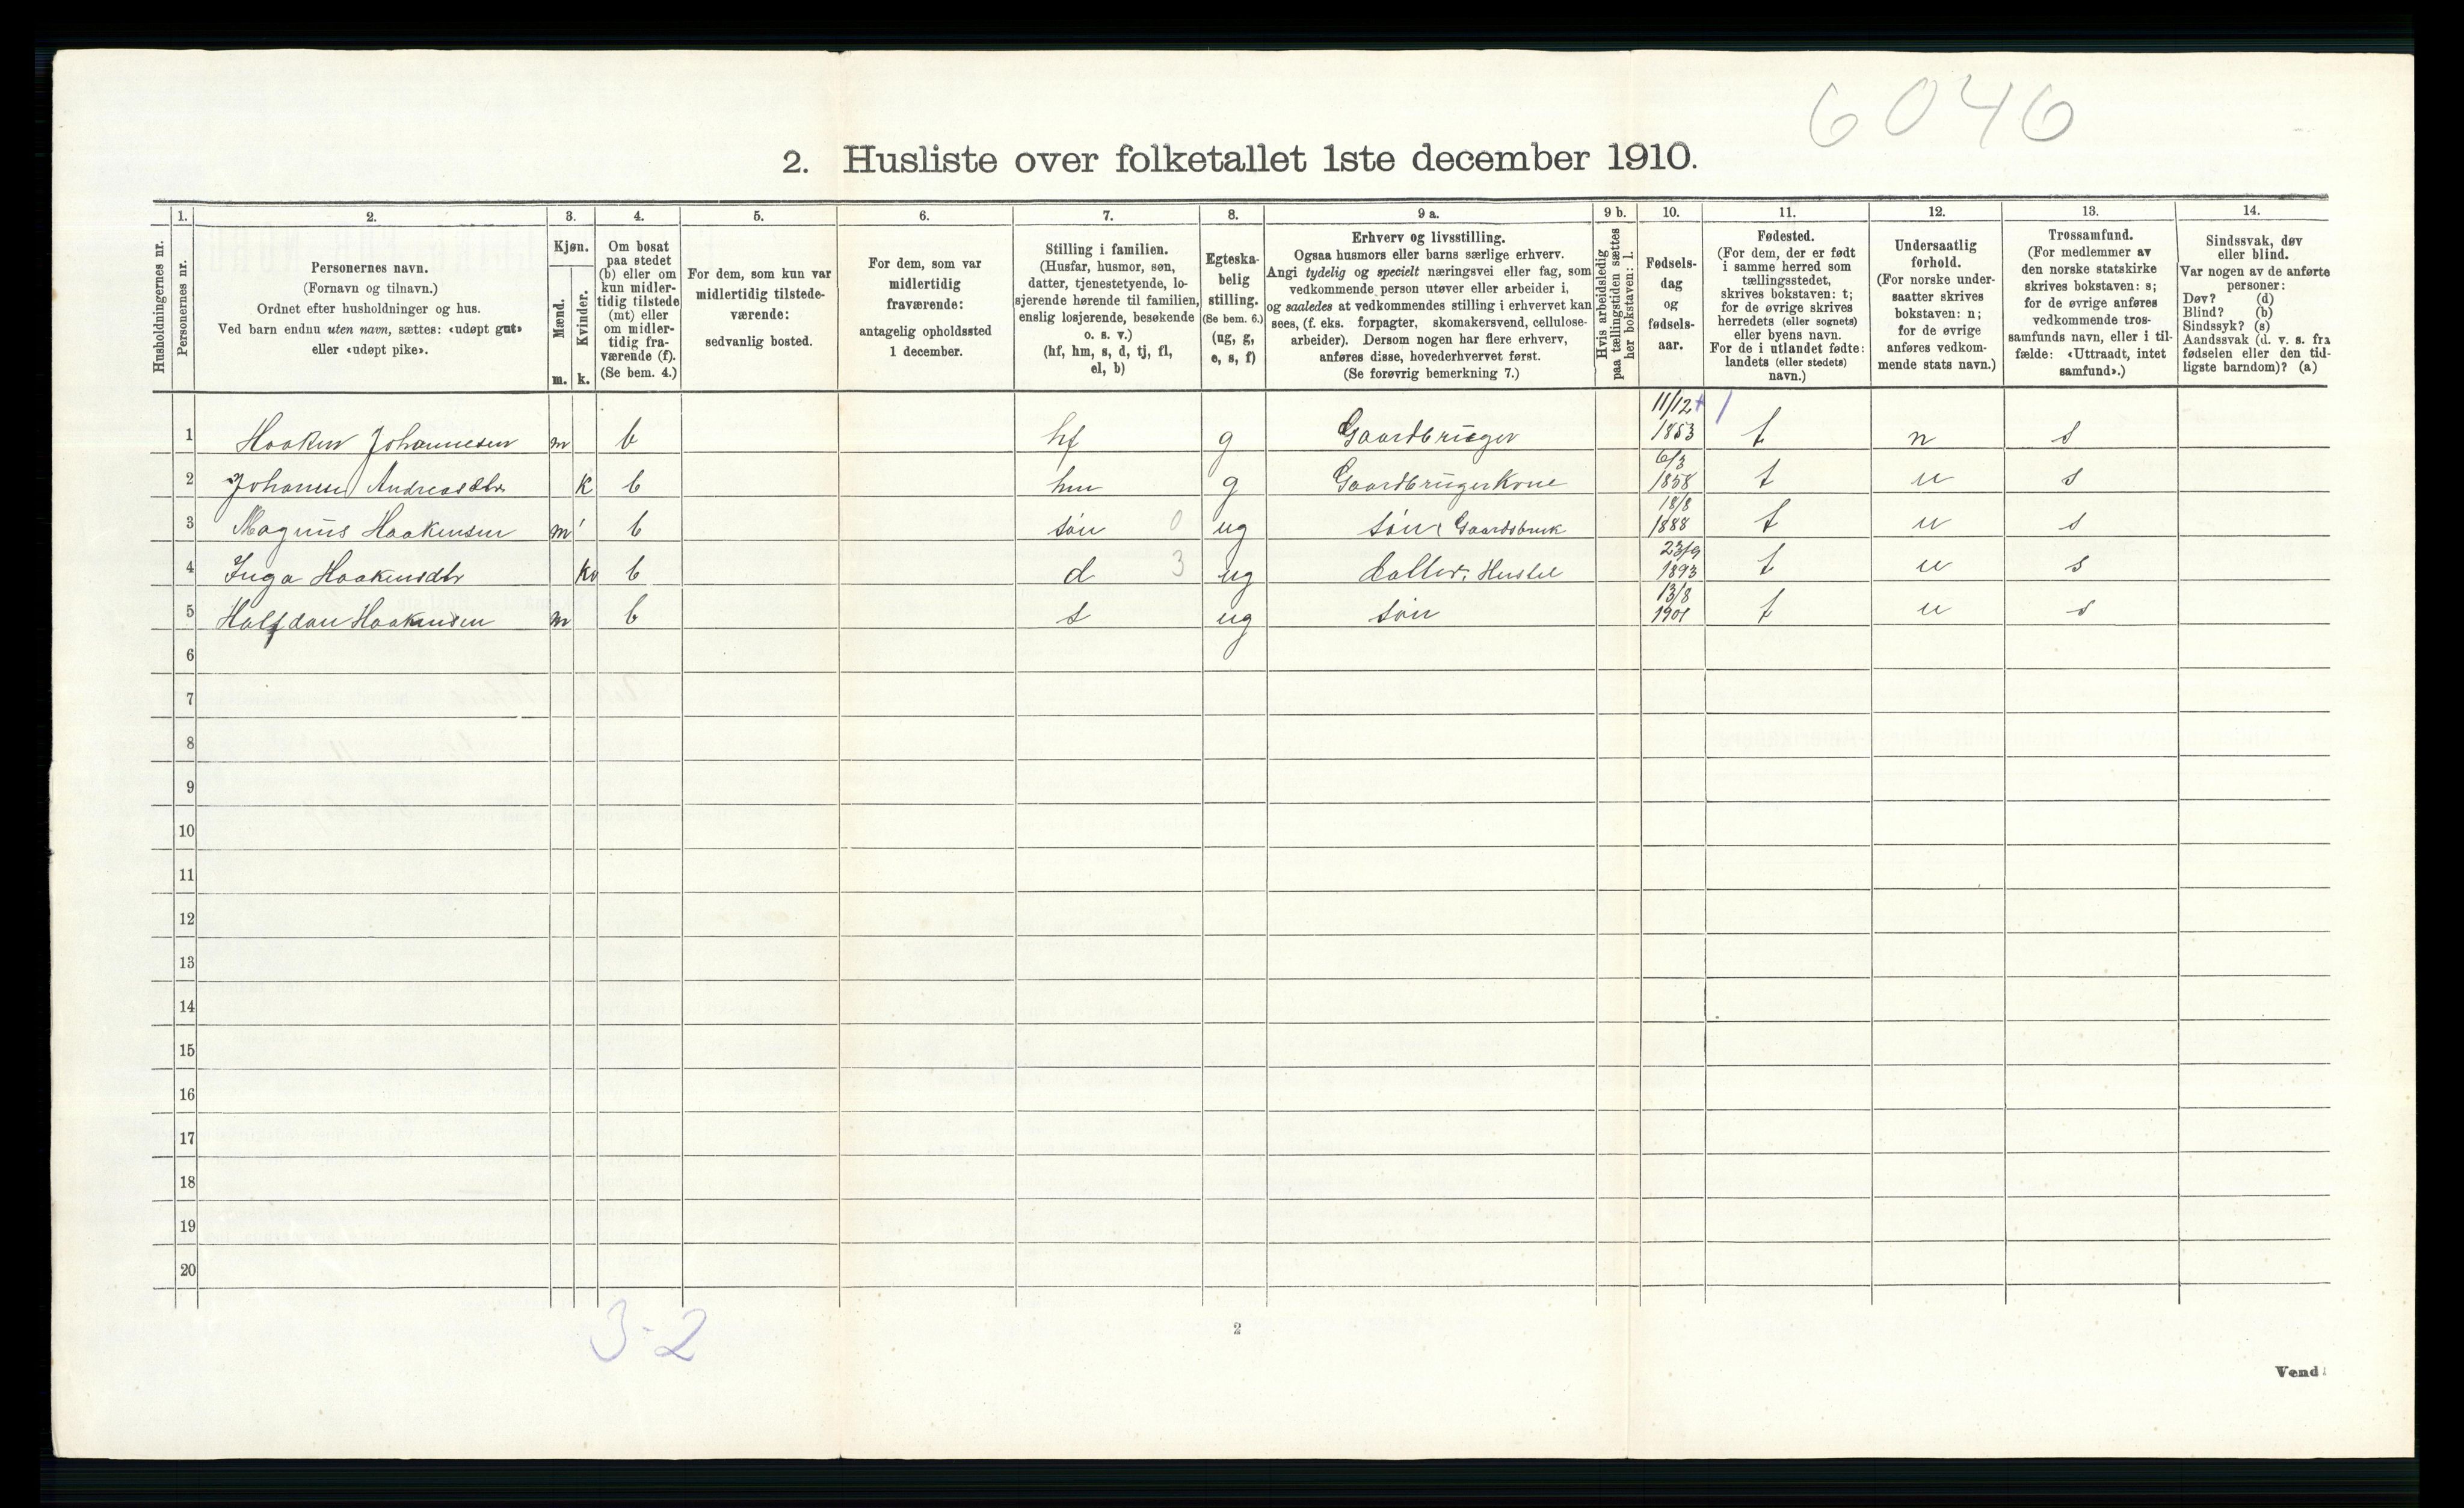 6046
2. Husliste over folketallet 1ste december 1910.
1. 2. 3. 4. 5. 6. 7. 8. 9 a. 9 b. 10. 11. 12. 13. 14.
Husholdningernes nr.
Personernes nr.
Personernes navn.
(Fornavn og tilnavn.)
Ordnet efter husholdninger og hus.
Ved barn endnu uten navn, sættes: «udøpt gut»
eller «udøpt pike».
Kjøn.
Mænd.
Kvinder.
m. k.
Om bosat
paa stedet
(b) eller om
kun midler-
tidig tilstede
(mt) eller
om midler-
tidig fra-
værende (f).
(Se bem. 4.)
For dem, som kun var
midlertidig tilstede-
værende:
sedvanlig bosted.
For dem, som var
midlertidig
fraværende:
antagelig opholdssted
1 december.
Stilling i familien.
(Husfar, husmor, søn,
datter, tjenestetyende, lo-
sjerende hørende til familien,
enslig losjerende, besøkende
o. s. v.)
(hf, hm, s, d, tj, fl,
el, b)
Egteska-
belig
stilling.
(Se bem. 6.)
(ug, g,
e, s, f)
Erhverv og livsstilling.
Ogsaa husmors eller barns særlige erhverv.
Angi tydelig og specielt næringsvei eller fag, som
vedkommende person utøver eller arbeider i,
og saaledes at vedkommendes stilling i erhvervet kan
sees, (f. eks. forpagter, skomakersvend, cellulose-
arbeider). Dersom nogen har flere erhverv,
anføres disse, hovederhvervet først.
(Se forøvrig bemerkning 7.)
Hvis arbeidsledig
paa tællingstiden sættes
her bokstaven: l.
Fødsels-
dag
og
fødsels-
aar.
Fødested.
(For dem, der er født
i samme herred som
tællingsstedet,
skrives bokstaven: t;
for de øvrige skrives
herredets (eller sognets)
eller byens navn.
For de i utlandet fødte:
landets (eller stedets)
navn.)
Undersaatlig
forhold.
(For norske under-
saatter skrives
bokstaven: n;
for de øvrige
anføres vedkom-
mende stats navn.)
Trossamfund.
(For medlemmer av
den norske statskirke
skrives bokstaven: s;
for de øvrige anføres
vedkommende tros-
samfunds navn, eller i til-
fælde: «Uttraadt, intet
samfund».)
Sindssvak, døv
eller blind.
Var nogen av de anførte
personer:
Døv? (d)
Blind? (b)
Sindssyk? (s)
Aandssvak (d. v. s. fra
fødselen eller den tid-
ligste barndom)? (a)
1 Haaken Johannesen m b hf g Gaardbruger 11/12 1853 t n s
2 Johanne Andreasdtr k b hm g Gaardbrugerkone 6/3 1858 t n s
3 Magnus Haakensen m b søn 0 ug søn Gaardsbruk 18/8 1888 t n s
4 Inga Haakensdtr kv b d 3 ug datter. Husstel 23/9 1893 t n s
5 Halfdan Haakensen m b s ug søn 13/8 1901 t n s
6
7
8
9
10
11
12
13
14
15
16
17
18
19
20
3-2
2
Vend!